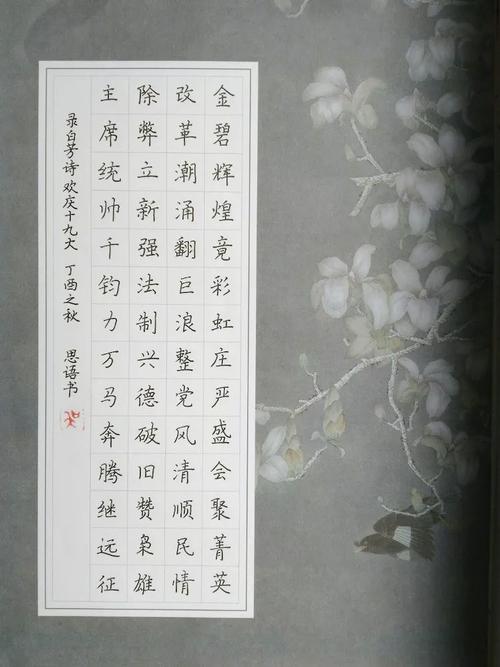 金碧辉煌竟彩虹庄严盛会聚菁英
改革潮涌翻巨浪整党风清顺民情
除弊立新强法制兴德破旧赞枭雄
主席统帅千钧力万马奔腾继远征
录白芳诗 欢庆十九大 丁酉之秋 思语书